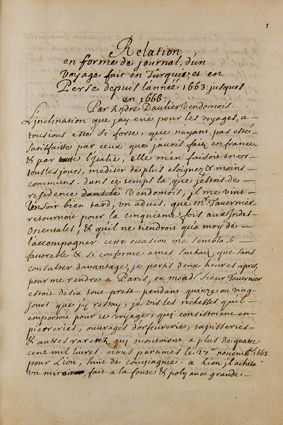 1
Relation
en forme de journal, d'un
voyage fait en Turquie, et en
Perse depuis l'année 1663. jusques
en 1666.
Par André Daulier Vendomois.
L'inclination que j'ay eüe pour les voyages, a
tousiours esté si forte, que n'ayant pas esté
satisfaitte par ceux que j'avois faits en france
& par toute l'Italie, elle m'en faisoit encor
tous les jours, mediter de plus eloignez & moins
communs. dans ce temps là que j'estois de
residence dans le Vendomois, il me vint
un soir bien tard, un advis, que Mr. Tavernier
retournoit pour la cinquieme fois aux Indes
Orientales, & qu'il ne tiendroit qu'a moy de
l'accompagner. cette occasion me sembla si
favorable & si conforme a mes souhaits, que sans
consulter davantage, je partis deux heures apres,
pour me rendre a Paris, ou le Sieur Tavernier
estoit desia tout prest. pendant quinze ou vingt
jours que j'y restay, je vis les richesses qu'il
emportoit pour ce voyage, qui consistoient en
pierreries, ouvrages d'orfeuverie, tapisseries
& autres raretez qui montoient a plus de quatre
cent mil livres. nous partismes le 27e. novembre 1663.
pour Lion, huit de compagnie. a Lion, j'achetté
un miroir fait a la fonte & poly avec grande